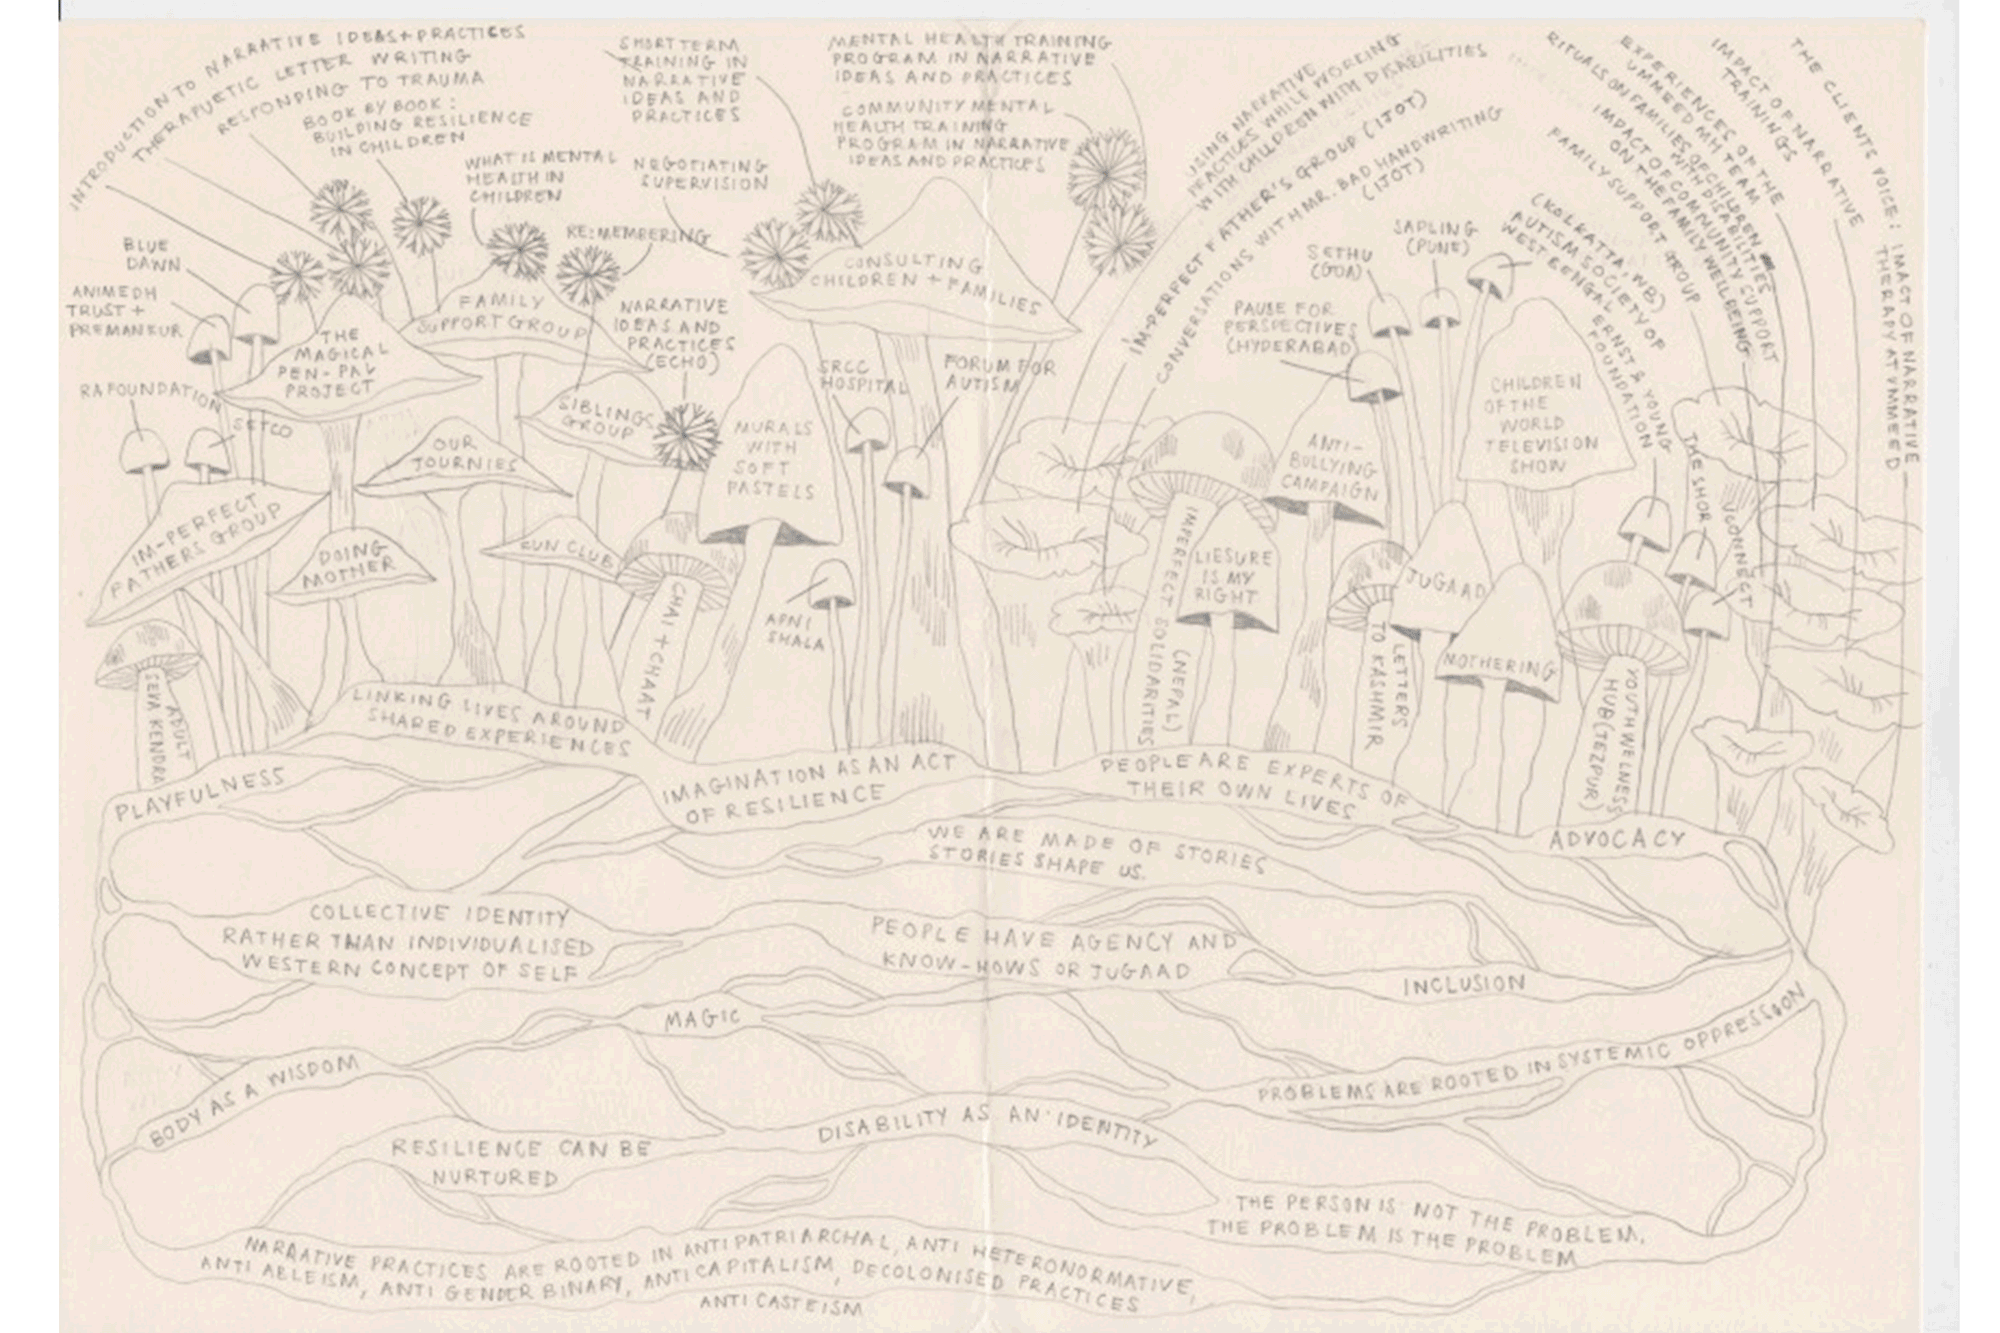 INTRODUCTION TO NARRATIVE IDEAS + PRACTICES
THERAPUETIC LETTER WRITING
RESPONDING TO TRAUMA
BOOK BY BOOK:
BUILDING RESILIENCE
IN CHILDREN
WHAT IS MENTAL
HEALTH IN
CHILDREN
SHORT TERM
TRAINING IN
NARRATIVE
IDEAS AND
PRACTICES
NEGOTIATING
SUPERVISION
RE:MEMBERING
MENTAL HEALTH TRAINING
PROGRAM IN NARRATIVE
IDEAS AND PRACTICES
COMMUNITY MENTAL
HEALTH TRAINING
PROGRAM IN NARRATIVE
IDEAS AND PRACTICES
USING NARRATIVE
PRACTICES WHILE WORKING
WITH CHILDREN WITH DISABILITIES
I'M-PERFECT FATHER'S GROUP (IJOT)
CONVERSATIONS WITH MR. BAD HANDWRITING
(IJOT)
THE CLIENTS VOICE: IMACT OF NARRATIVE
THERAPY AT UMMEED
IMPACT OF NARRATIVE
TRAININGS
EXPERIENCES OF THE
UMMEED MH TEAM
RITUALS ON FAMILIES OF CHILDREN
WITH DISABILITIES
IMPACT OF COMMUNITY SUPPORT
ON THE FAMILY WELL BEING
FAMILY SUPPORT GROUP
BLUE
DAWN
ANIMEDH
TRUST +
PREMANEUR
RA FOUNDATION
SETCO
THE
MAGICAL
PEN-PAL
PROJECT
FAMILY
SUPPORT GROUP
NARRATIVE
IDEAS AND
PRACTICES
(ECHO)
CONSULTING
CHILDREN + FAMILIES
SIBLINGS
GROUP
OUR
JOURNIES
MURALS
WITH
SOFT
PASTELS
SRCC
HOSPITAL
FORUM FOR
AUTISM
SETHU
(GOA)
SAPLING
(PUNE)
(KOLKATTA, WB)
AUTISM SOCIETY OF
WEST BENGAL
ERNST & YOUNG
FOUNDATION
PAUSE FOR
PERSPECTIVES
(HYDERABAD)
CHILDREN
OF THE
WORLD
TELEVISION
SHOW
ANTI-
BULLYING
CAMPAIGN
THE SHOR
UCONNECT
IM-PERFECT
FATHERS GROUP
DOING
MOTHER
FUN CLUB
CHAI + CHAAT
APNI
SHALA
IMPERFECT SOLIDARITIES
(NEPAL)
LIESURE
IS MY
RIGHT
JUGAAD
LETTERS
TO KASHMIR
MOTHERING
YOUTH WELLNESS
HUB (TEZPUR)
ADULT
SEVA KENDRA
LINKING LIVES AROUND
SHARED EXPERIENCES
PLAYFULNESS
IMAGINATION AS AN ACT
OF RESILIENCE
PEOPLE ARE EXPERTS OF
THEIR OWN LIVES
ADVOCACY
WE ARE MADE OF STORIES
STORIES SHAPE US.
COLLECTIVE IDENTITY
RATHER THAN INDIVIDUALISED
WESTERN CONCEPT OF SELF
PEOPLE HAVE AGENCY AND
KNOW-HOWS OR JUGAAD
INCLUSION
MAGIC
BODY AS A WISDOM
PROBLEMS ARE ROOTED IN SYSTEMIC OPPRESSION
DISABILITY AS AN IDENTITY
RESILIENCE CAN BE
NURTURED
THE PERSON IS NOT THE PROBLEM.
THE PROBLEM IS THE PROBLEM
NARRATIVE PRACTICES ARE ROOTED IN ANTI PATRIARCHAL, ANTI HETERONORMATIVE,
ANTI ABLEISM, ANTI GENDER BINARY, ANTI CAPITALISM, DECOLONISED PRACTICES
ANTI CASTEISM